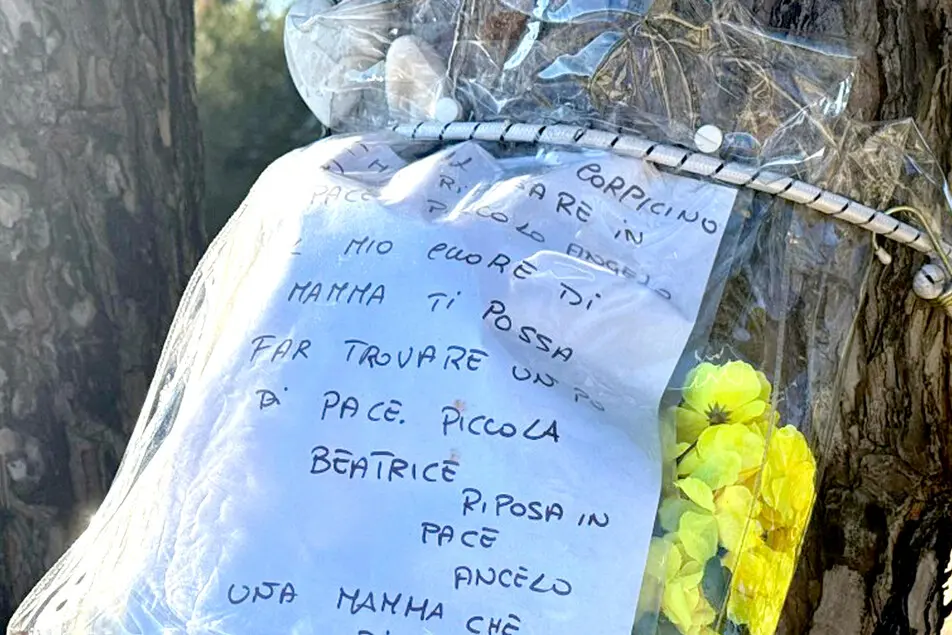 CORPICINO
IN
PACE PICCOLO ANGELO
IL MIO CUORE DI
MAMMA TI POSSA
FAR TROVARE UN PO
DI PACE. PICCOLA
BEATRICE
RIPOSA IN
PACE
ANGELO
UNA MAMMA CHE